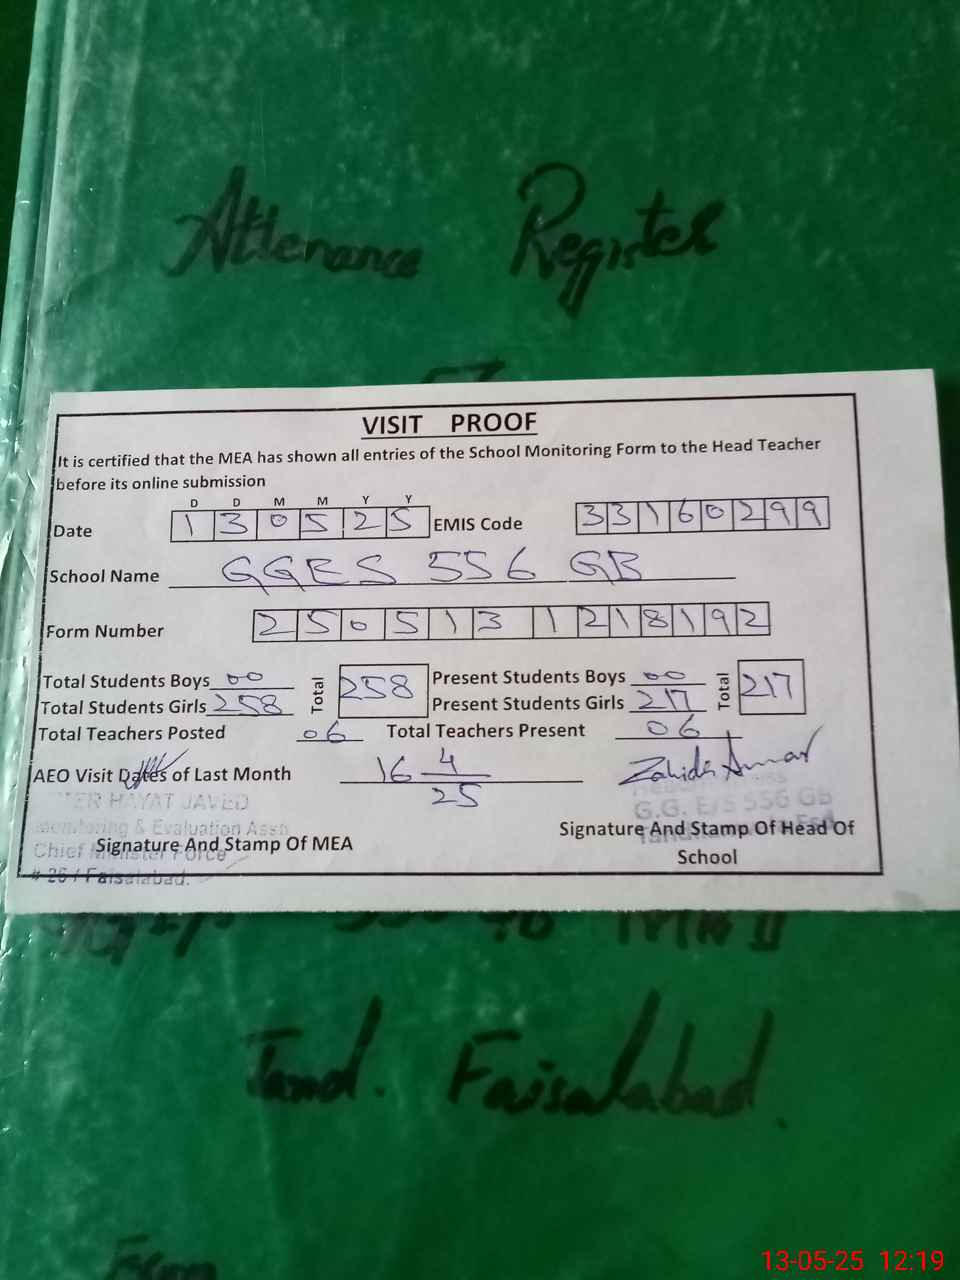 Attenance Register
VISIT PROOF
It is certified that the MEA has shown all entries of the School Monitoring Form to the Head Teacher
before its online submission
D D M M Y Y
Date 130525 EMIS Code 33160299
School Name GGES 556 GB
Form Number 250513 1218192
Total Students Boys 00 Total 258 Present Students Boys 00 Total 217
Total Students Girls 258 Present Students Girls 217
Total Teachers Posted 06 Total Teachers Present 06
AEO Visit Dates of Last Month 16 4 25
Zahida
HAYAT JAVED
Monitoring & Evaluation Asstt
Chief Minister Force
# 26 / Faisalabad.
G.G. E/S 556 GB
Signature And Stamp Of MEA
Signature And Stamp Of Head Of
School
Tand. Faisalabad.
From
13-05-25 12:19